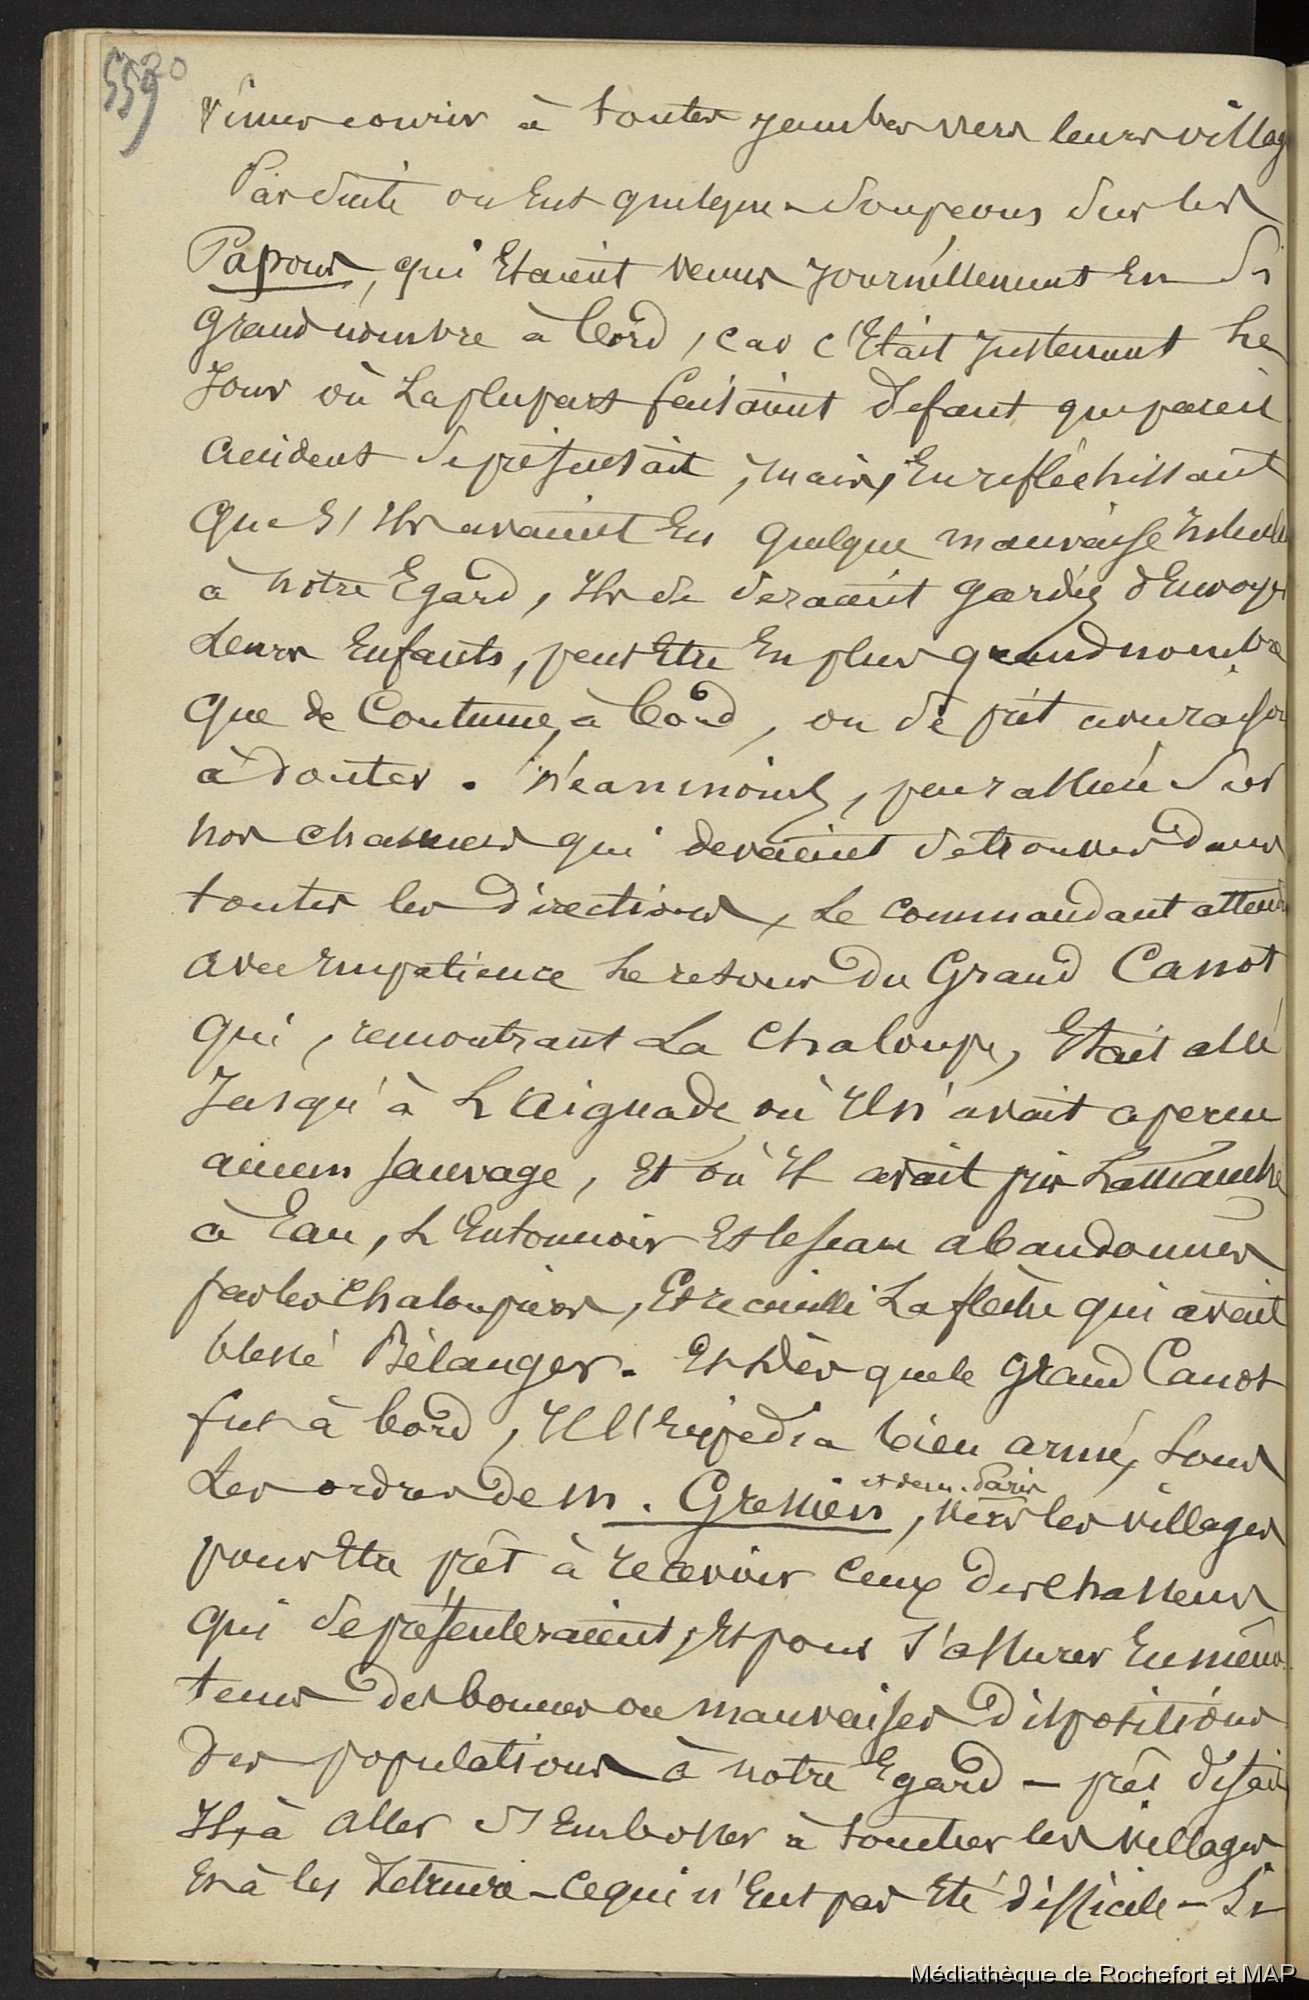 5590
vîmes courir à toutes jambes vers leurs villag
Par suite on eut quelques soupçons sur les
Papous, qui étaient venus journellement en si
grand nombre à bord, car c'était justement le
jour où la plupart faisaient défaut que pareil
accident se présentait, mais, en réfléchissant
que s'ils avaient eu quelque mauvaise
à notre égard, ils se seraient gardés d'envoyer
leurs enfants, peut être en plus grand nombre
que de coutume, à bord, on se prit avec raison
à douter. Néanmoins, peu rassuré sur
nos chasseurs qui devaient se trouver dans
toutes les directions, le commandant attend
avec impatience le retour du Grand Canot
qui, remontrant la chaloupe, était allé
jusqu'à l'aiguade où il n'avait aperçu
aucun sauvage, et où il avait pris la manche
à eau, l'entonnoir et le seau abandonnés
par les chaloupiers, et recueilli la flèche qui avait
blessé Bélanger. Et dès que le grand Canot
fut à bord, il l'expédia bien armé, sous
et de m. Paris
les ordres de m. Gressien, vers les villages
pour être prêt à recevoir ceux des chasseurs
qui se présenteraient, et pour s'assurer en même
tems des bonnes ou mauvaises dispositions
des populations à notre égard – prêt disait
il, à aller s'embosser à toucher les villages
et à les détruire – ce qui n'eut pas été difficile – Le
Médiathèque de Rochefort et MAP